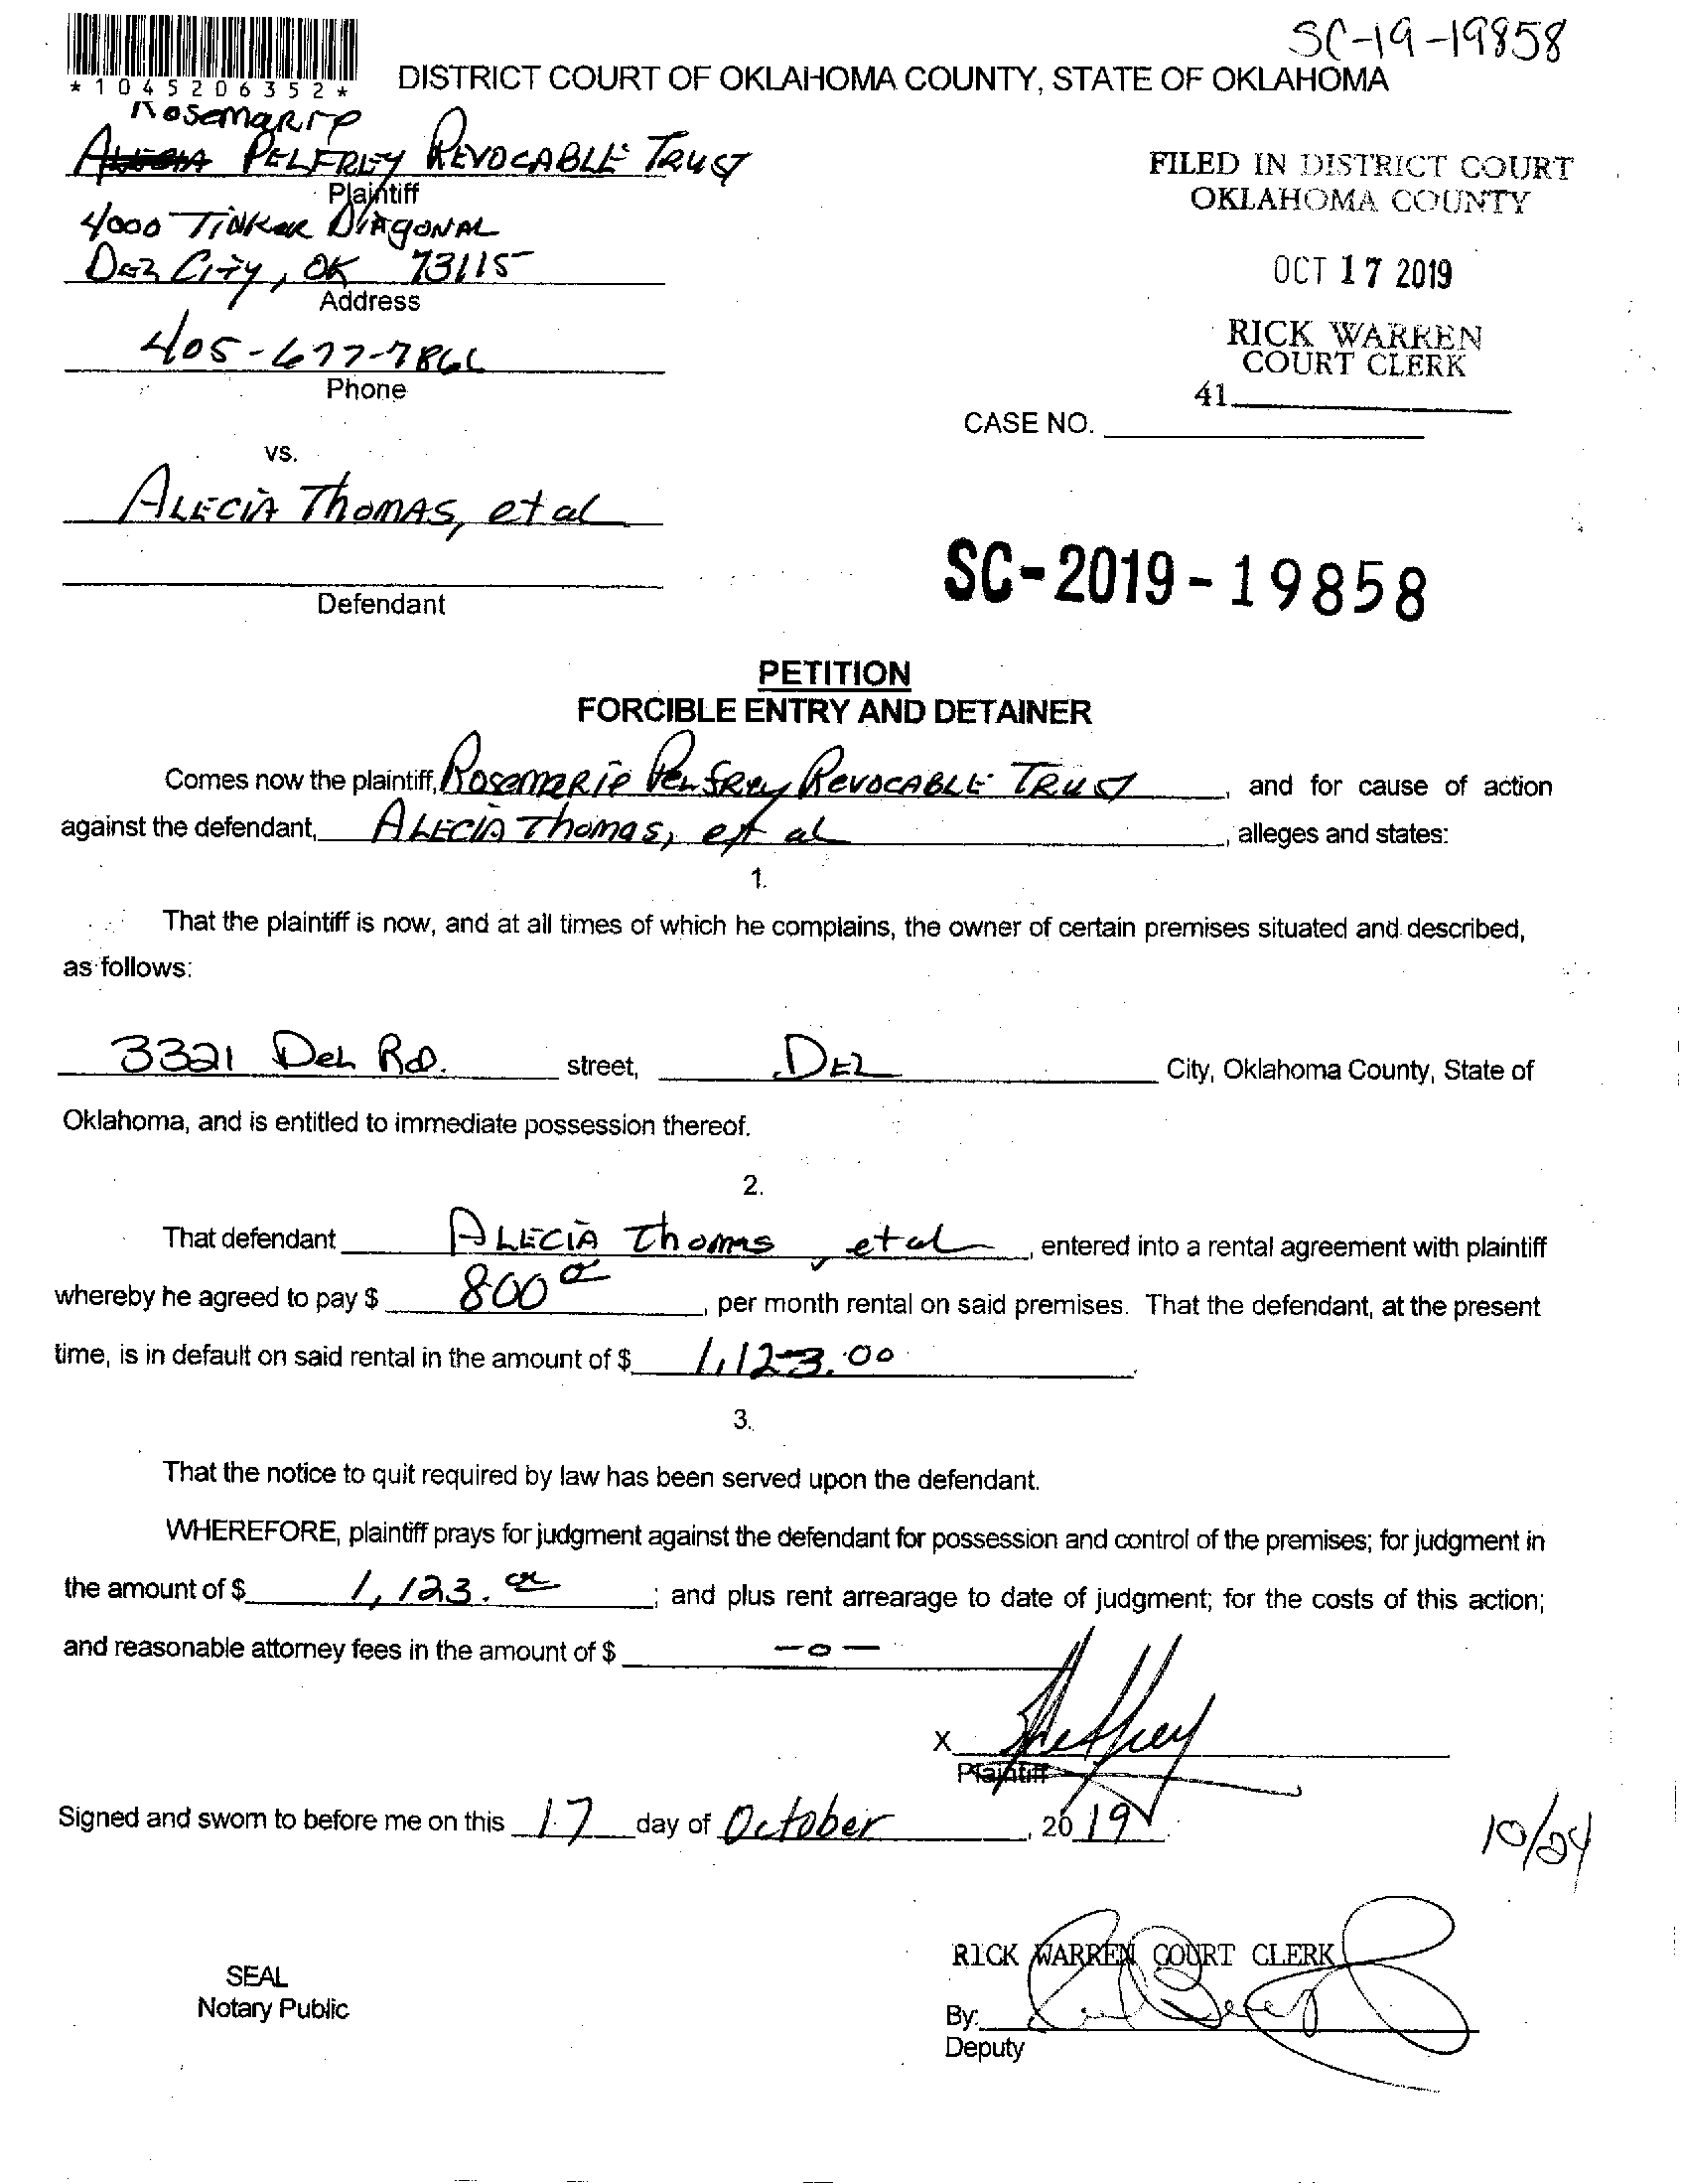 SC-19-19858
*1045206352*
DISTRICT COURT OF OKLAHOMA COUNTY, STATE OF OKLAHOMA
Rosemarie
PELFREY REVOCABLE TRUST
Plaintiff
4000 TINKER DIAGONAL
DEL CITY, OK 73115
Address
405-677-7866
Phone
FILED IN DISTRICT COURT
OKLAHOMA COUNTY
OCT 17 2019
RICK WARREN
COURT CLERK
41
CASE NO.
vs.
ALECIA THOMAS, et al
Defendant
SC-2019-19858
PETITION
FORCIBLE ENTRY AND DETAINER
Comes now the plaintiff, ROSEMARIE PELFREY REVOCABLE TRUST, and for cause of action
against the defendant, ALECIA Thomas, et al, alleges and states:
1.
That the plaintiff is now, and at all times of which he complains, the owner of certain premises situated and described,
as follows:
3321 DEL RD. street, DEL City, Oklahoma County, State of
Oklahoma, and is entitled to immediate possession thereof.
2.
That defendant ALECIA Thomas, et al, entered into a rental agreement with plaintiff
whereby he agreed to pay $ 800 , per month rental on said premises. That the defendant, at the present
time, is in default on said rental in the amount of $ 1,123.00
3.
That the notice to quit required by law has been served upon the defendant.
WHEREFORE, plaintiff prays for judgment against the defendant for possession and control of the premises; for judgment in
the amount of $ 1,123. ; and plus rent arrearage to date of judgment; for the costs of this action;
and reasonable attorney fees in the amount of $ -0-
X
Plaintiff
Signed and sworn to before me on this 17 day of October, 2019.
10/24
RICK WARREN COURT CLERK
SEAL
Notary Public
By:
Deputy